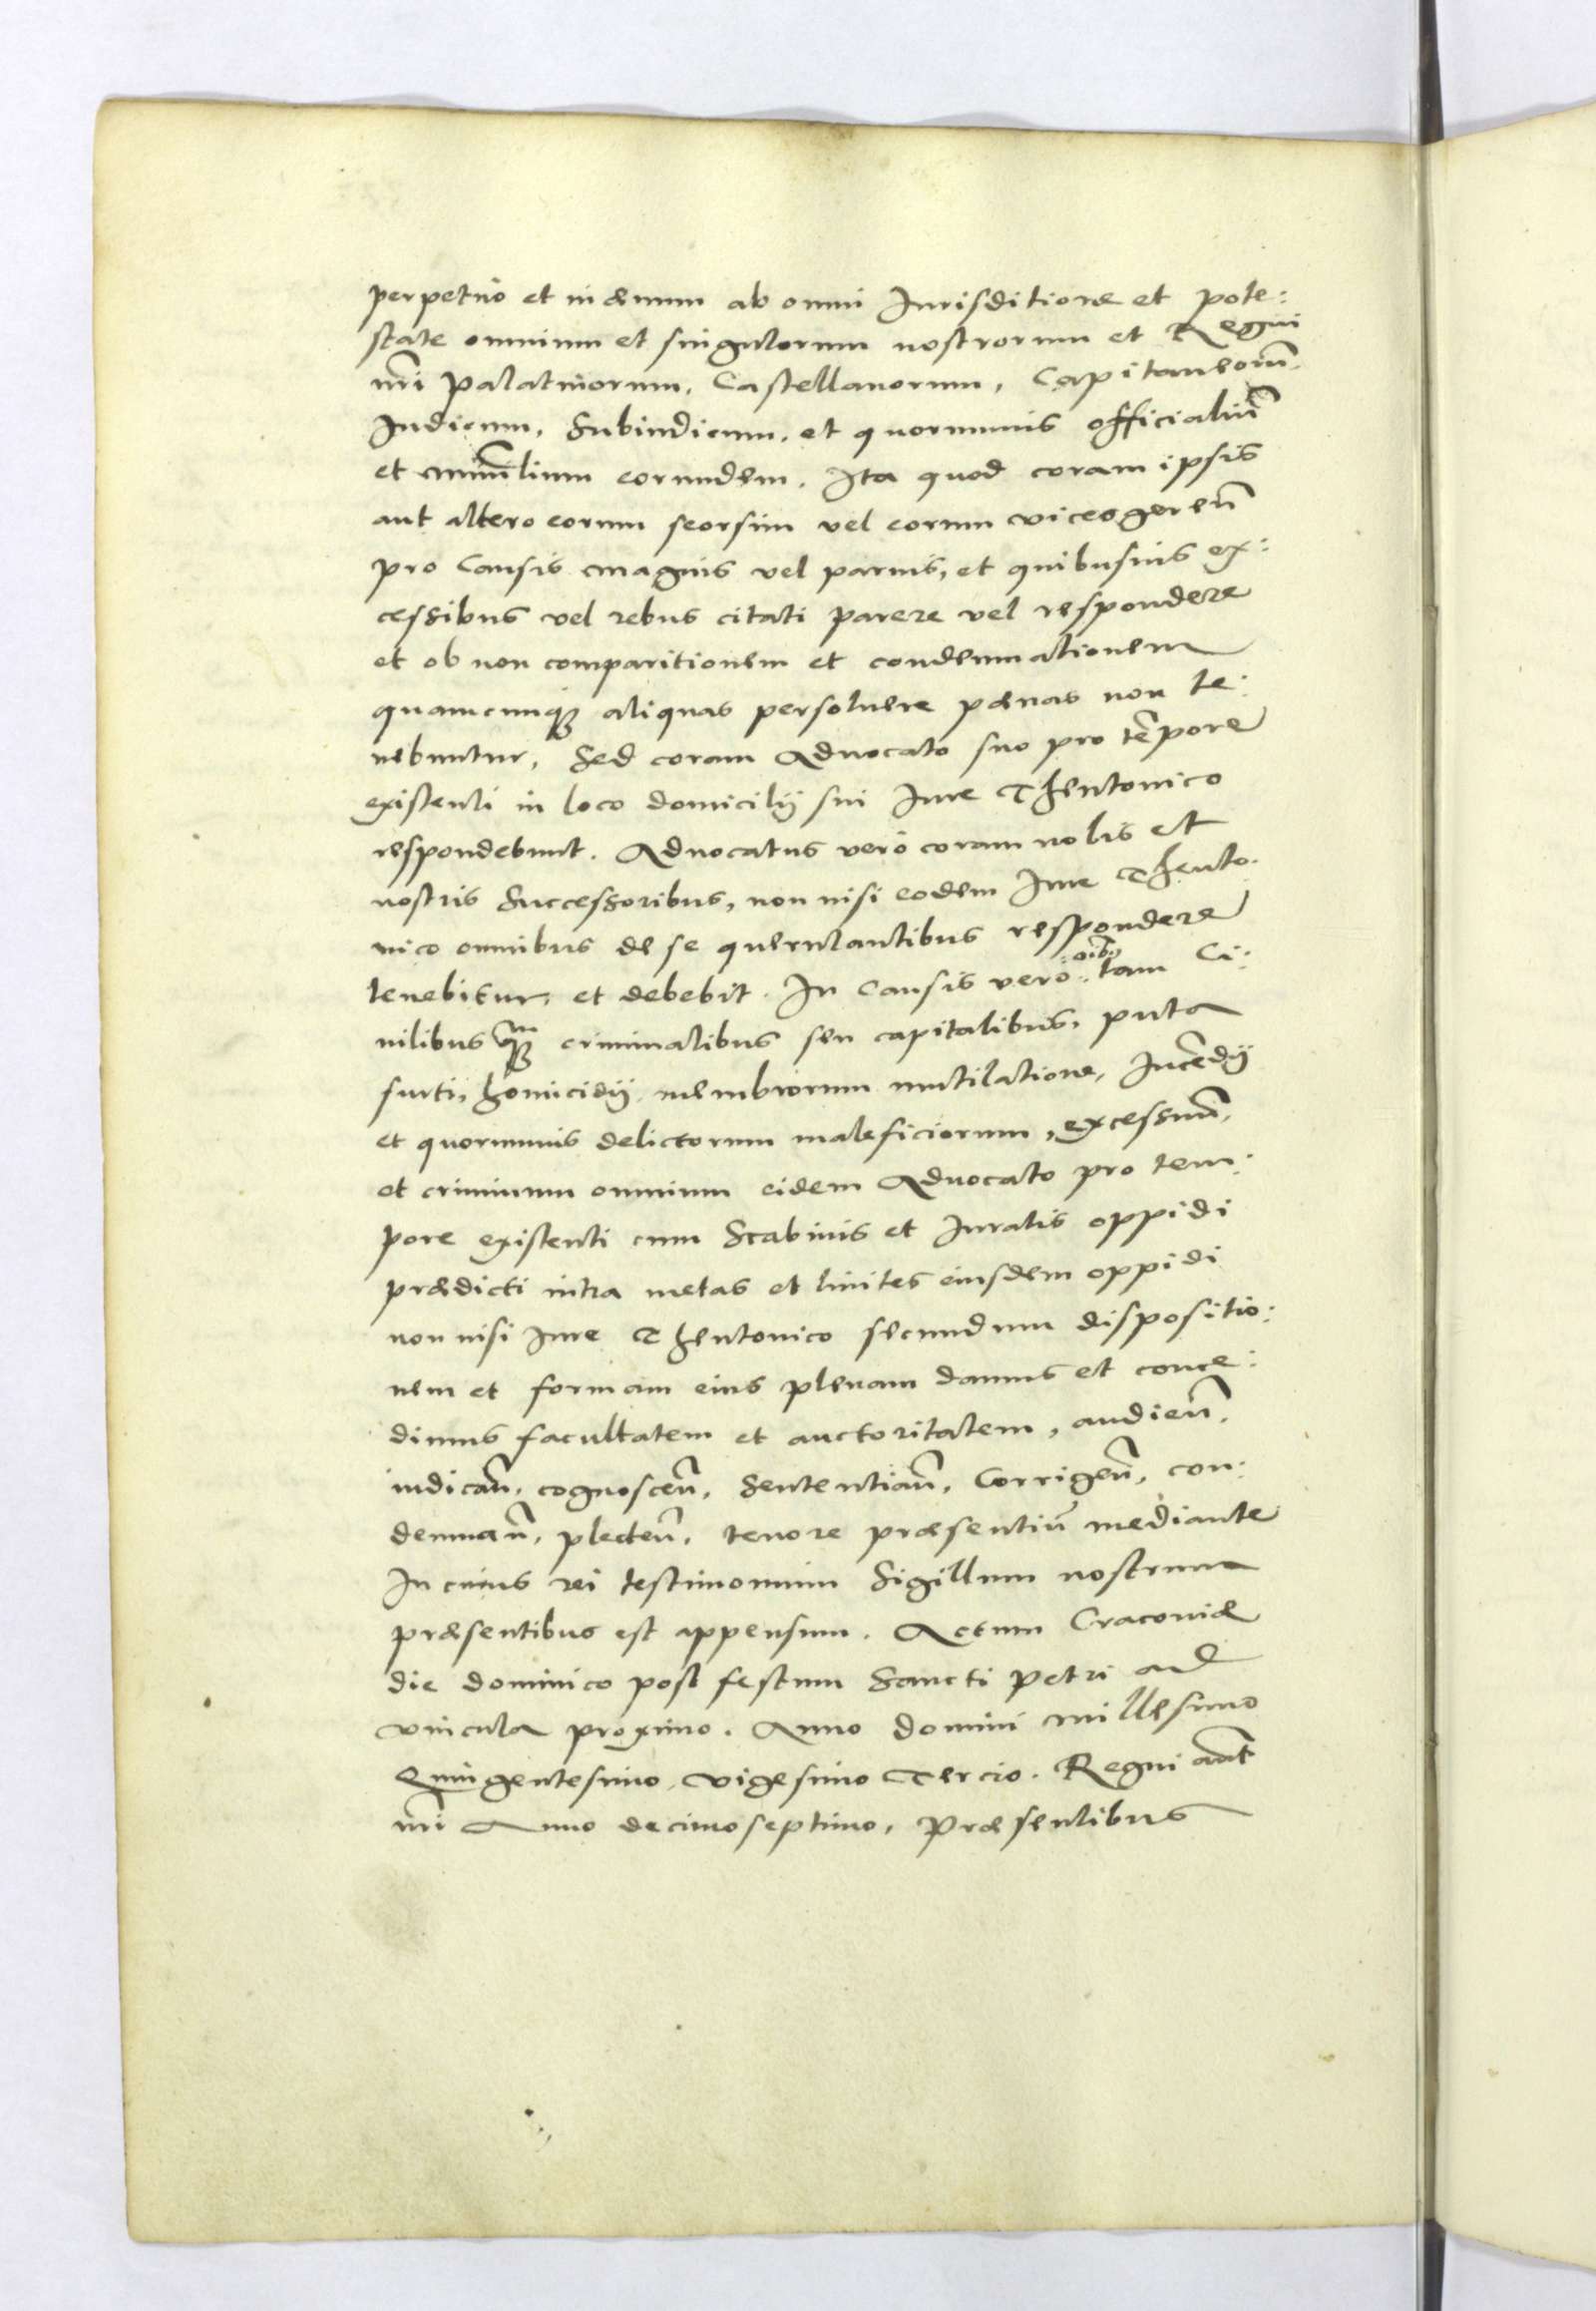 perpetuo et in æuum ab omni Jurisditione et pote:
state omnium et singulorum nostrorum et Regni
nr̃i Palatinorum, Castellanorum, Capitaneorũ,
Judicum, Subiudicum, et quorumuis officialiũ
et ministerialium eorundem. Ita quod coram ipsis
aut altero eorum seorsim vel eorum vicesgereñ
pro Causis magnis vel paruis, et quibusuis ex:
cessibus vel rebus citati parere vel respondere
et ob non comparitionem et condemnationem
quamcunq₃ aliquas persoluere pœnas non te:
nebuntur, Sed coram Aduocato suo pro tẽpore
existenti in loco domicilij sui Jure Theutonico
respondebunt. Aduocatus verò coram nobis et
nostris Successoribus, non nisi eodem Jure Theuto:
nico omnibus de se querulantibus respondere
tenebitur, et debebit. In Causis verò oib₉ tam Ci:
uilibus q̃₃ criminalibus seu capitalibus, puta
furti, homicidij membrorum mutilatione, Incẽdij
et quorumuis delictorum maleficiorum, excessuũ,
et criminum omnium eidem Aduocato pro tem:
pore existenti cum Scabinis et Juratis oppidi
prædicti intra metas et limites eiusdem oppidi
non nisi Jure Theutonico secundum dispositio:
nem et formam eius plenam damus et conce:
dimus facultatem et auctoritatem, audieñ,
iudicañ, cognosceñ, Sententiañ, Corrigeñ, con:
demnañ, plecteñ, tenore præsentiũ mediante
In cuius rei testimonium Sigillum nostrum
præsentibus est appensum. Actum Cracouiæ
die dominico post festum Sancti Petri ad
vincula proximo. Anno domini millesimo
Quingentesimo vigesimo Tercio. Regni aũt
nr̃i Anno decimoseptimo, Præsentibus